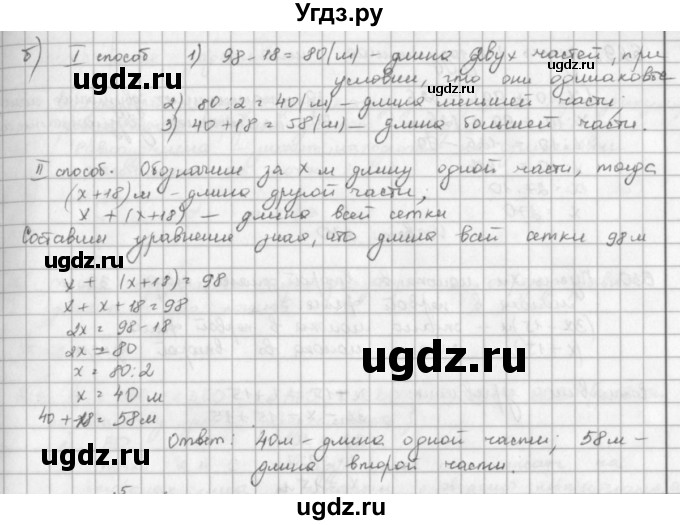 Угдз.ру
б) I способ 1) 98 - 18 = 80 (м) - длина двух частей, при
условии, что они одинаковые
2) 80 : 2 = 40 (м) - длина меньшей части;
3) 40 + 18 = 58 (м) - длина большей части.
II способ. Обозначим за x м длину одной части, тогда
(x + 18) м - длина другой части;
x + (x + 18) - длина всей сетки
Составим уравнение зная, что длина всей сетки 98 м
x + (x + 18) = 98
x + x + 18 = 98
2x = 98 - 18
2x = 80
x = 80 : 2
x = 40 м
40 + 18 = 58 м
Ответ: 40 м - длина одной части; 58 м -
длина второй части.
uugdz.ru
uugdz.ru
uugdz.ru
uugdz.ru
uugdz.ru
uugdz.ru